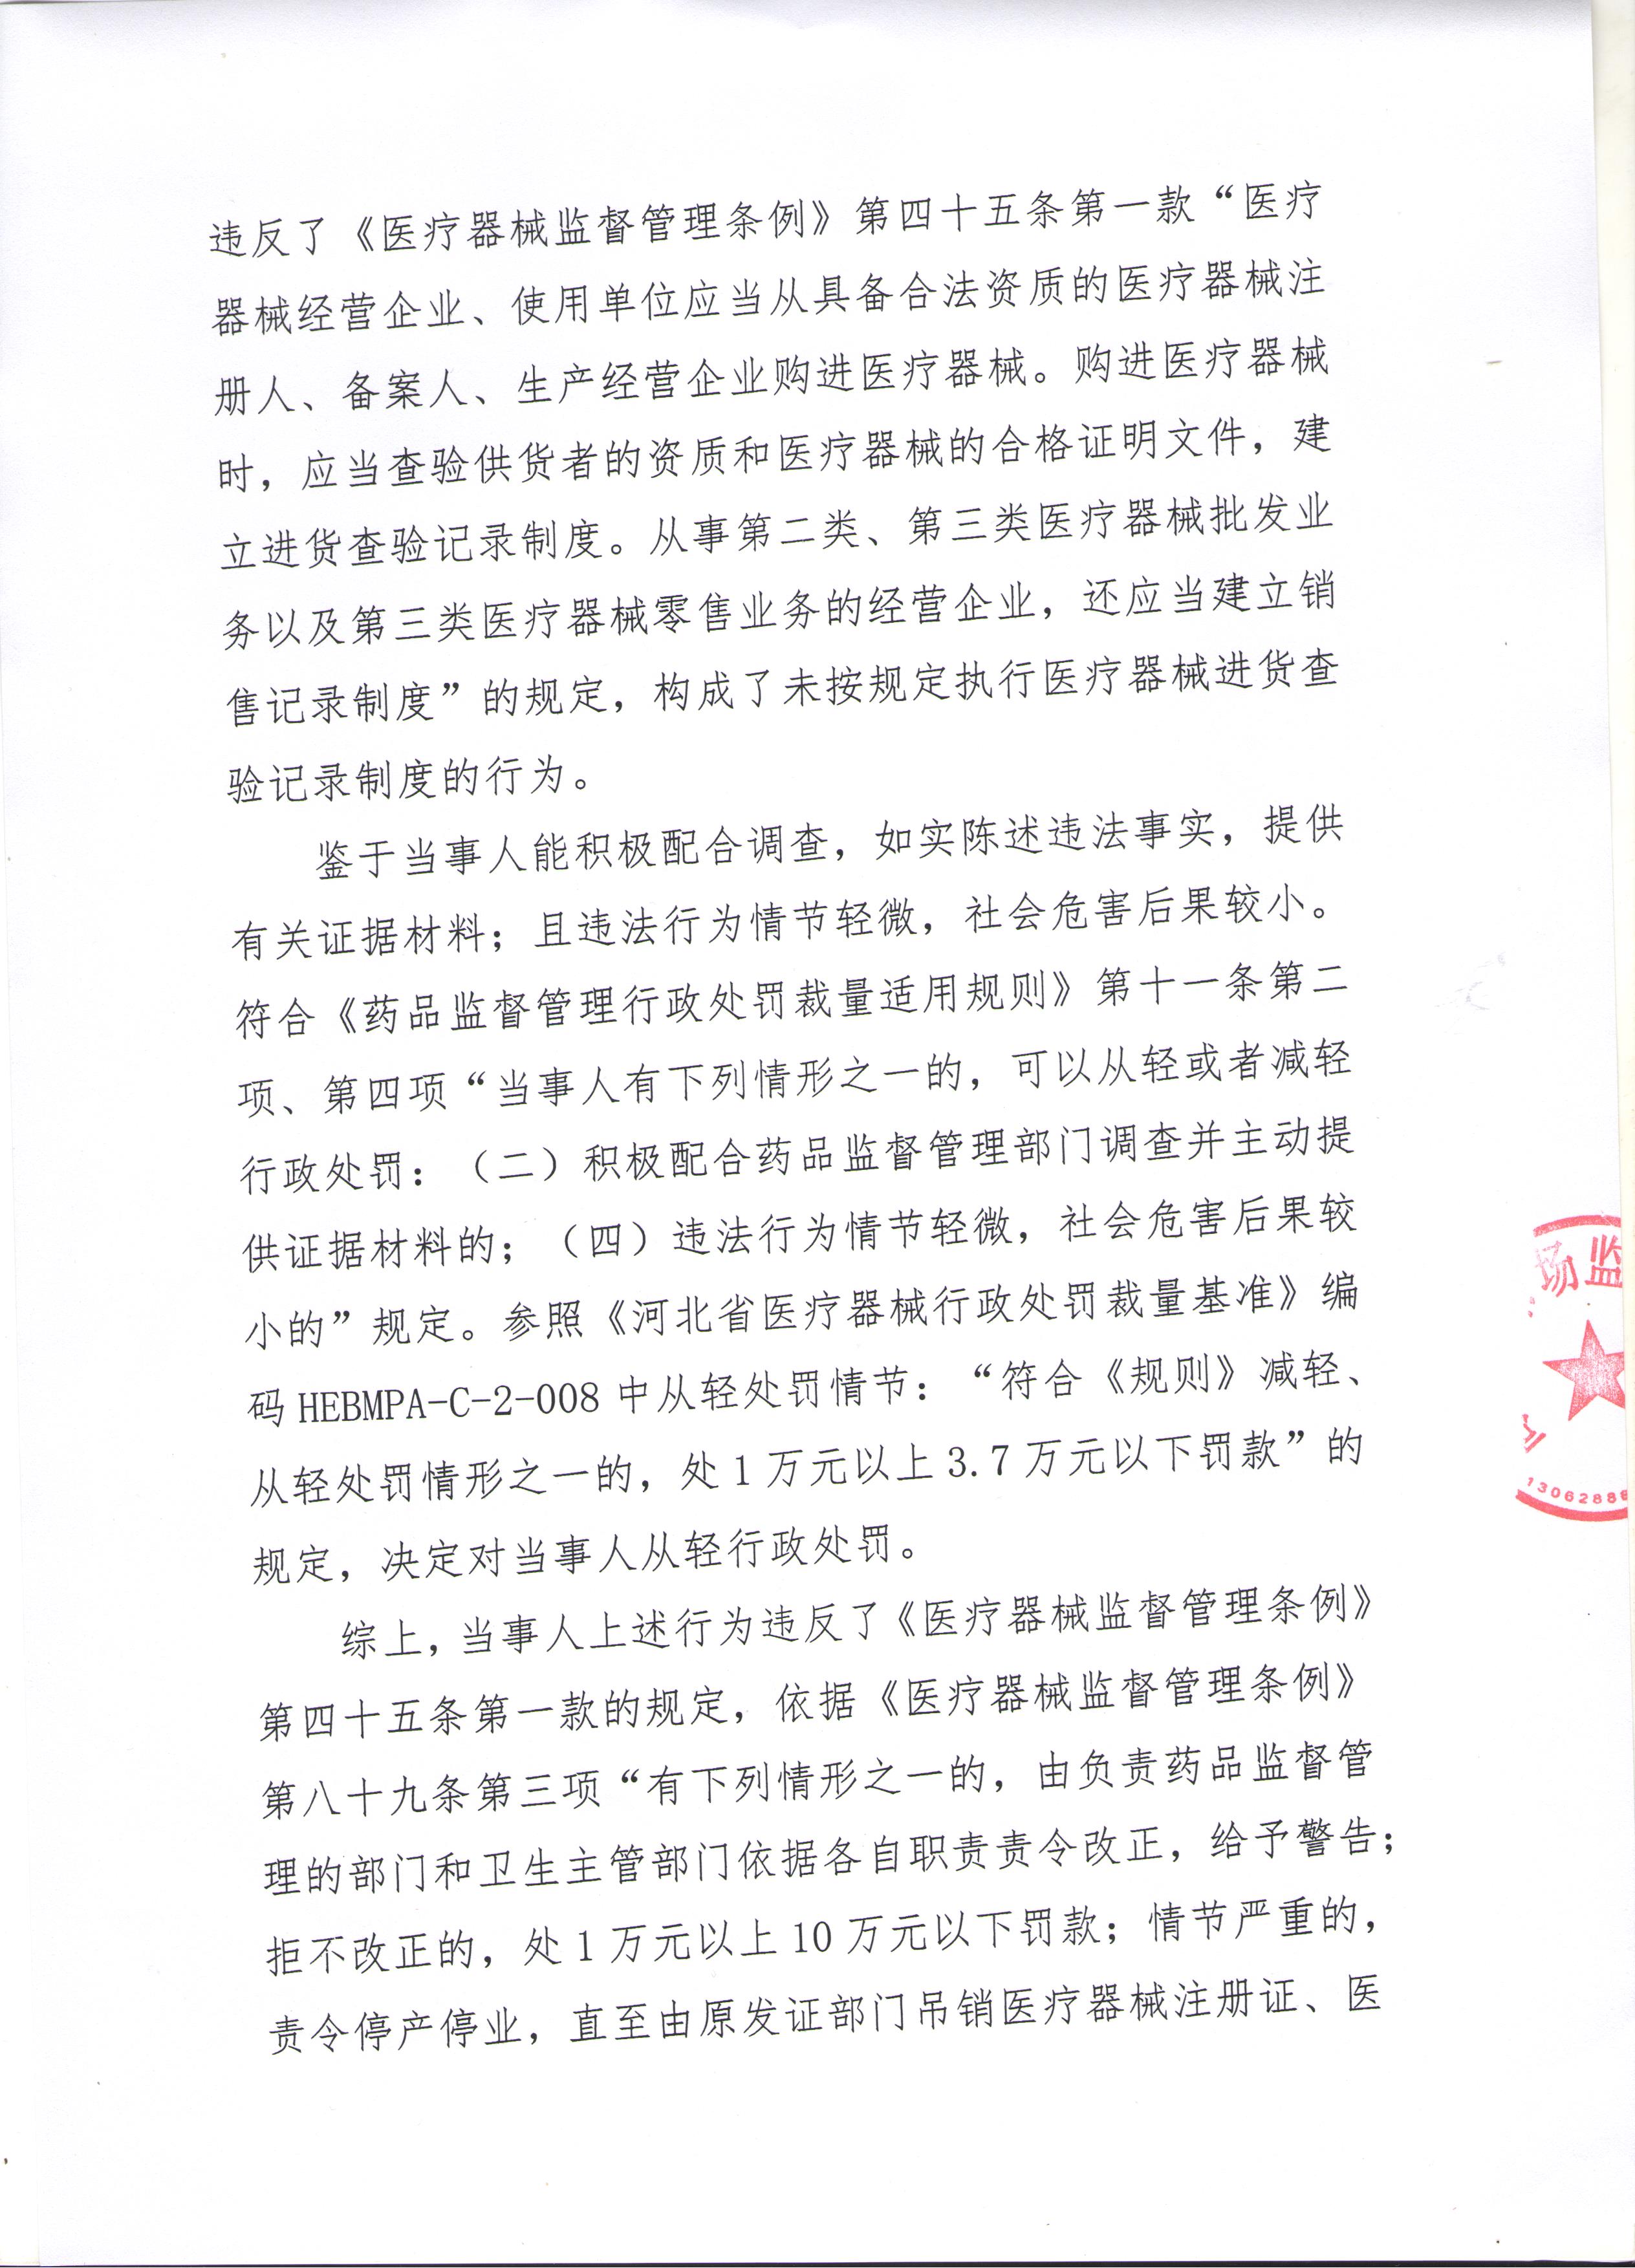 违反了《医疗器械监督管理条例》第四十五条第一款“医疗
器械经营企业、使用单位应当从具备合法资质的医疗器械注
册人、备案人、生产经营企业购进医疗器械。购进医疗器械
时，应当查验供货者的资质和医疗器械的合格证明文件，建
立进货查验记录制度。从事第二类、第三类医疗器械批发业
务以及第三类医疗器械零售业务的经营企业，还应当建立销
售记录制度”的规定，构成了未按规定执行医疗器械进货查
验记录制度的行为。
鉴于当事人能积极配合调查，如实陈述违法事实，提供
有关证据材料；且违法行为情节轻微，社会危害后果较小。
符合《药品监督管理行政处罚裁量适用规则》第十一条第二
项、第四项“当事人有下列情形之一的，可以从轻或者减轻
行政处罚：（二）积极配合药品监督管理部门调查并主动提
供证据材料的；（四）违法行为情节轻微，社会危害后果较
小的”规定。参照《河北省医疗器械行政处罚裁量基准》编
码 HEBMPA-C-2-008 中从轻处罚情节：“符合《规则》减轻、
从轻处罚情形之一的，处 1 万元以上 3.7 万元以下罚款”的
规定，决定对当事人从轻行政处罚。
综上，当事人上述行为违反了《医疗器械监督管理条例》
第四十五条第一款的规定，依据《医疗器械监督管理条例》
第八十九条第三项“有下列情形之一的，由负责药品监督管
理的部门和卫生主管部门依据各自职责责令改正，给予警告；
拒不改正的，处 1 万元以上 10 万元以下罚款；情节严重的，
责令停产停业，直至由原发证部门吊销医疗器械注册证、医
场监
13062888